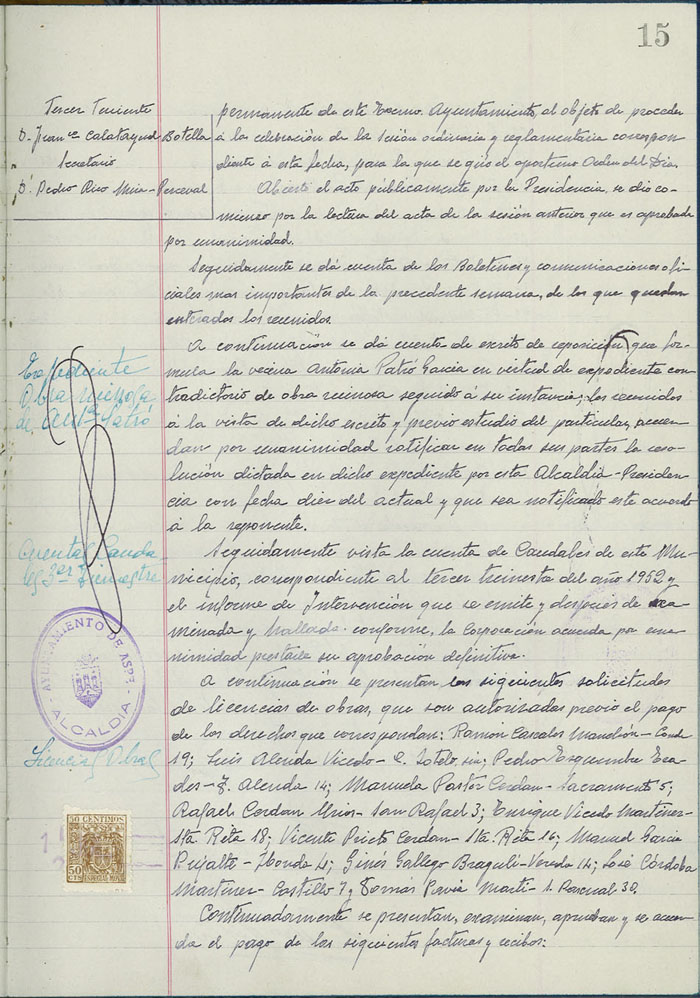 15
Tercer Teniente
D. Franco Calatayud Botella
Secretario
D. Pedro Rico Mira-Perceval
permanente de este Excmo. Ayuntamiento, al objeto de proceder
á la celebración de la sesión ordinaria y reglamentaria correspon
diente á esta fecha, para la que se giró el oportuno Orden del Dia.
Abierto el acto públicamente por la Presidencia, se dio co-
mienzo por la lectura del acta de la sesión anterior que es aprobada
por unanimidad.
Seguidamente se dá cuenta de los Boletines y comunicaciones ofi-
ciales mas importantes de la precedente semana, de los que quedan
enterados los reunidos.
Expediente
Obra ruinosa
de Antª Patró
A continuación se dá cuenta de escrito de reposición que for-
mula la vecina Antonia Patró Garcia en virtud de expediente con
tradictorio de obra ruinosa seguido á su instancia; los reunidos
á la vista de dicho escrito y previo estudio del particular, acuer-
dan por unanimidad ratificar en todas sus partes la reso-
lución dictada en dicho expediente por esta Alcaldia-Presiden-
cia con fecha diez del actual y que sea notificado este acuerdo
á la reponente.
Cuentas Cauda
les 3er Trimestre
Seguidamente vista la cuenta de Caudales de este Mu-
nicipio, correspondiente al tercer trimestre del año 1952 y
el informe de Intervención que se emite y despues de exa
minada y hallada conforme, la Corporación acuerda por una-
nimidad prestarle su aprobación definitiva.
AYUNTAMIENTO DE ASPE
ALCALDIA
Licencias Obras
A continuación se presentan las siguientes solicitudes
de licencias de obras, que son autorizadas previo el pago
de los derechos que correspondan: Ramón Cascales Manchón-Conde
19; Luis Alenda Vicedo-C. Sotelo, sn; Pedro Esquembre
J. Alenda 14; Manuela Pastor Cerdan-Sacramento 5;
Rafael Cerdan Urios-San Rafael 3; Enrique Vicedo Martinez-
Sta Rita 18; Vicente Prieto Cerdan-Sta. Rita 16; Manuel Garcia
Pujalte 4; Ginés Gallego Braguli-Vereda 14; José Córdoba
Martinez-Castillo 7 y Tomás Pavia Marti-S. Pascual 30.
Continuadamente se presentan, examinan, aprueban y se acuer
da el pago de las siguientes facturas y recibos:
50 CENTIMOS
50
CTS
ESPECIAL MOVIL